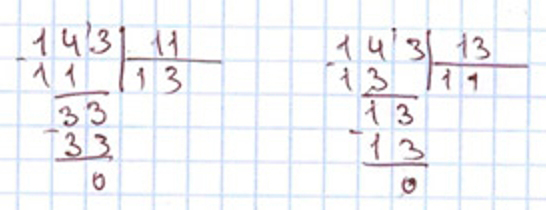 14'3 | 11
- 11 | 13
33
- 33
0
14'3 | 13
- 13 | 11
13
- 13
0